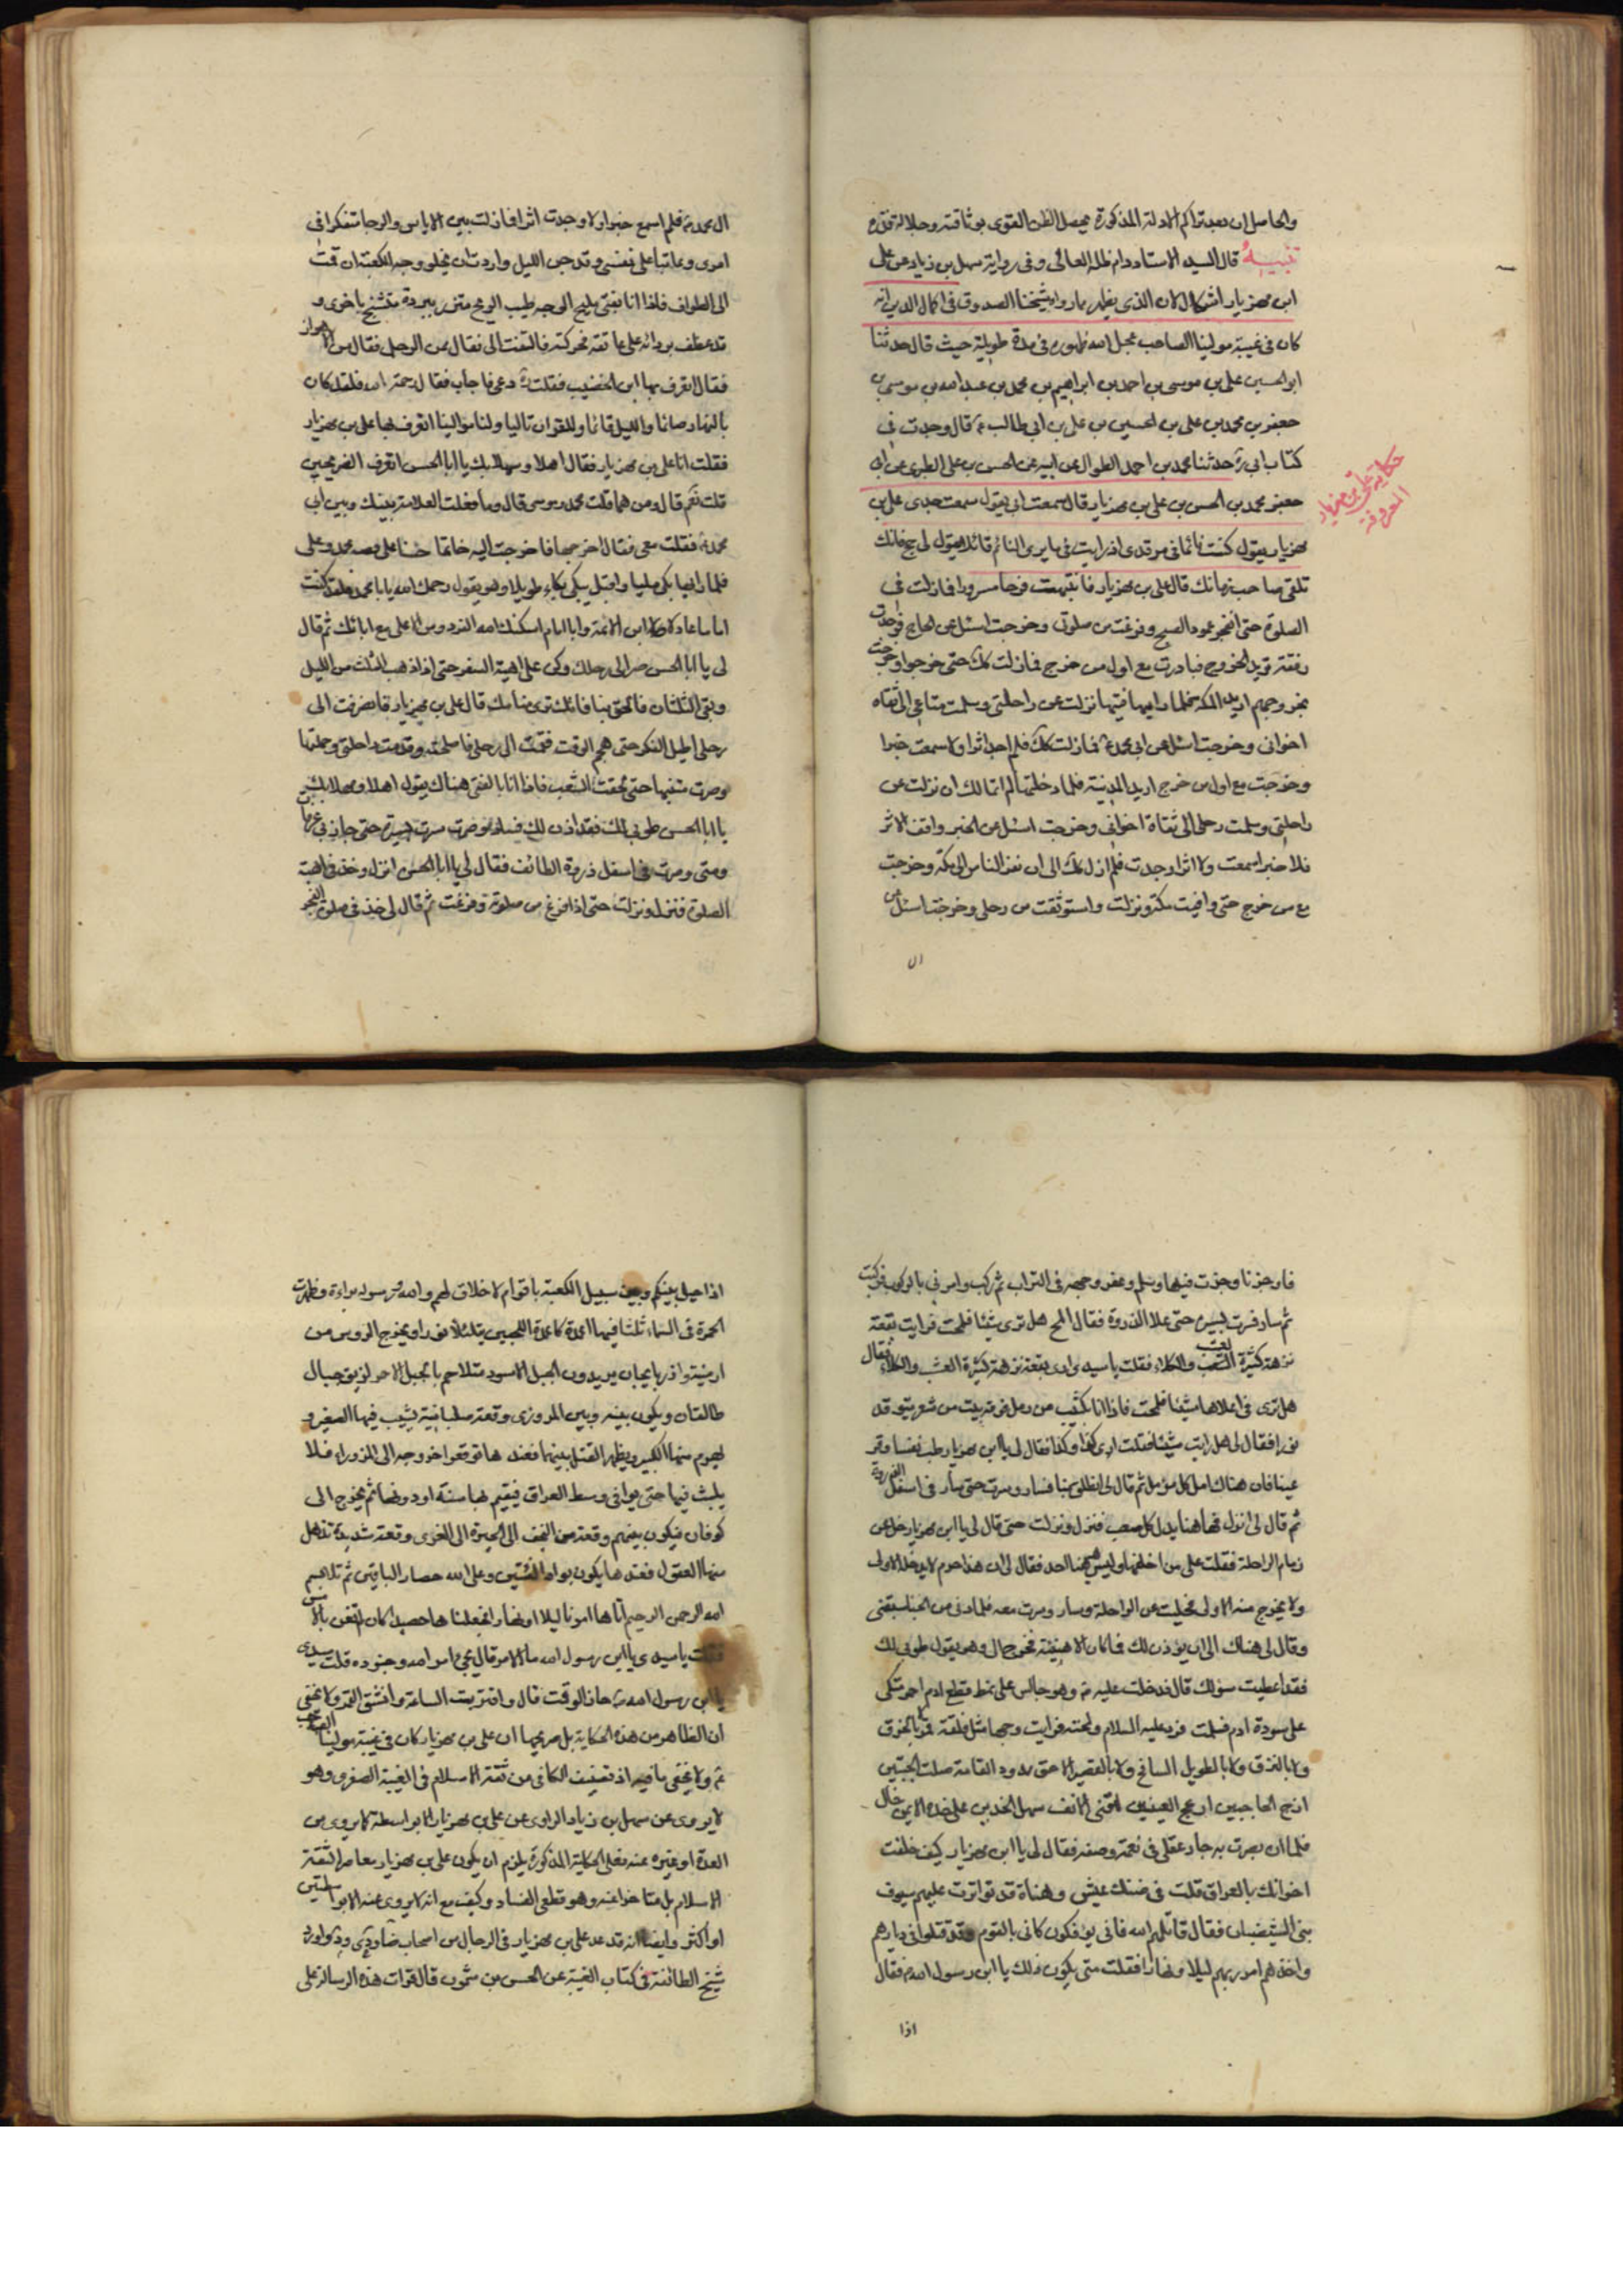 والحاصل ان بعد تراكم الادلة المذكورة يحصل الظن القوى بوثاقته وجلالة قدره
تنبيه قال السيد الاستاد دام ظله العالى وفى رواية سهل بن زياد عن على
ابن مهزيار اشكال لان الذى يظهر مما رواه شيخنا الصدوق فى اكمال الدين انه
كان فى غيبة مولينا الصاحب عجل الله ظهوره فى مدة طويلة حيث قال حدثنا
ابو الحسين على بن موسى بن احمد بن ابراهيم بن محمد بن عبد الله بن موسى بن
جعفر بن محمد بن على بن الحسين بن على بن ابى طالب ع قال وجدت فى
كتاب ابى رة حدثنا محمد بن احمد الطوال عن ابيه عن الحسن بن على الطبرى عن ابى
جعفر محمد بن الحسن بن على بن مهزيار قال سمعت ابى يقول سمعت جدى على بن
مهزيار يقول كنت نائما فى مرقدى اذ رايت فى ما يرى النائم قائلا يقول لى حج فانك
تلقى صاحب زمانك قال على بن مهزيار فانتبهت فرحا مسرورا فما زلت فى
الصلوة حتى انفجر عمود الصبح وفرغت من صلوتى وخرجت اسئل عن الحاج فوجدت
رفقة تريد الخروج فبادرت مع اول من خرج فما زلت كك حتى خرجوا وخرجت
بخروجهم اريد المكة فلما وافيتها نزلت عن راحلتى وسلمت متاعى الى ثقاة
اخوانى وخرجت اسئل عن ابى محمد ع فما زلت كك فلم اجد اثرا ولا سمعت خبرا
وخرجت مع اول من خرج اريد المدينة فلما دخلتها لم اتمالك ان نزلت عن
راحلتى وسلمت رحلى الى ثقاة اخوانى وخرجت اسئل عن الخبر واقف الاثر
فلا خبرا سمعت ولا اثرا وجدت فلم ازل كك الى ان نفر الناس الى مكة وخرجت
مع من خرج حتى وافيت مكة ونزلت واستوثقت من رحلى وخرجت اسئل عن
ال
حكاية على بن مهزيار
المعروفة
ال محمد ع فلم اسمع خبرا ولا وجدت اثرا فما زلت بين الاياس والرجا متفكرا فى
امرى وعاتبا على نفسى وقد جن الليل واردت ان يخلو وجه الكعبة ان قمت
الى الطواف فاذا انا بفتى مليح الوجه طيب الريح متزر ببردة متشح باخرى و
قد عطف بردائه على عاتقه فحركته فالتفت الى فقال ممن الرجل فقال من الاهواز
فقال اتعرف بها ابن الخضيب فقلت رة دعى فاجاب فقال رحمة الله فلقد كان
بالنهار صائما وبالليل قائما وللقران تاليا ولنا مواليا اتعرف بها على بن مهزيار
فقلت انا على بن مهزيار فقال اهلا وسهلا بك يا ابا الحسن اتعرف الضريحين
قلت نعم قال ومن هما قلت محمد وموسى قال وما فعلت العلامة بينك وبين ابى
محمد ع فقلت معى فقال اخرجها فاخرجت اليه خاتما حسنا على فصه محمد وعلى
فلما راها بكى مليا واقبل يبكى بكاء طويلا وهو يقول رحمك الله يا با محمد فلقد كنت
اماما عادلا ابن الائمة وابا امام اسكنك الله الفردوس الاعلى مع ابائك ثم قال
لى يا ابا الحسن صر الى رحلك وكن على اهبة السفر حتى اذا ذهب الثلث من الليل
وبقى الثلثان فالحق بنا فانك ترى مناك قال على بن مهزيار فانصرفت الى
رحلى اطيل الفكر حتى هجم الوقت فقمت الى رحلى فاصلحته وقدمت راحلتى وحملتها
وصرت متنها حتى لحقت الشعب فاذا انا بالفتى هناك يقول اهلا وسهلا بك
يا ابا الحسن طوبى لك فقد اذن لك فسار وسرت بسيره حتى جاز بى عرفات
ومنى وصرت فى اسفل ذروة الطائف فقال لى يا ابا الحسن انزل وخذ فى اهبة
الصلوة فنزل ونزلت حتى اذا فرغ من صلوته وفرغت ثم قال لى خذ فى صلوة الفجر
فاوجز فاوجزت فيها وسلم وعفر وجهه فى التراب ثم ركب وامرنى بالركوب فركبت
ثم سار فسرت بسيره حتى علا الذروة فقال المح هل ترى شيئا فلمحت فرايت بقعة
نزهة كثيرة العشب والكلاء فقلت يا سيدى ارى بقعة نزهة كثيرة العشب والكلاء فقال
هل ترى فى اعلاها شيئا فلمحت فاذا انا بكثيب من رمل فوقه بيت من شعر يتوقد
نورا فقال لى هل رايت شيئا فقلت ارى كذا وكذا فقال لى يا ابن مهزيار طب نفسا وقر
عينا فان هناك امل كل مؤمل ثم قال لى انطلق بنا فسار وسرت حتى صار فى اسفل الذروة
ثم قال لى انزل فهاهنا يذل كل صعب فنزل ونزلت حتى قال لى يا ابن مهزيار خل عن
زمام الراحلة فقلت على من اخلفها وليس ههنا احد فقال لى ان هذا حرم لا يدخله الا ولى
ولا يخرج منه الا ولى فخليت عن الراحلة وسار وسرت معه فلما دنى من الخبا سبقنى
وقال لى هناك الى ان يؤذن لك فما كان الا هنيئة فخرج الى وهو يقول طوبى لك
فقد اعطيت سؤلك قال فدخلت عليه ع وهو جالس على نمط فقطع ادم احمر متكى
على مسورة ادم فسلمت فرد عليه السلام ولمحته فرايت وجها مثل فلقة قمر لا بالخرق
ولا بالنزق ولا بالطويل الشامخ ولا بالقصير اللاصق ممدود القامة صلت الجبين
ازج الحاجبين ادعج العينين اقنى الانف سهل الخدين على خده الايمن خال
فلما ان بصرت به حار عقلى فى نعته وصفته فقال لى يا ابن مهزيار كيف خلفت
اخوانك بالعراق قلت فى ضنك عيش وهناة قد تواترت عليهم سيوف
بنى الشيصبان فقال قاتلهم الله فانى يؤفكون كانى بالقوم وقد قتلوا فى ديارهم
واخذهم امر ربهم ليلا ونهارا فقلت متى يكون ذلك يا ابن رسول الله ع فقال
اذا
اذا حيل بينكم وبين سبيل الكعبة باقوام لا خلاق لهم والله ورسوله براءة وظهرت
الحمرة فى السماء ثلثا فيها اعمدة كاعمدة اللجين يتلئلأ نورا ويخرج الروس من
ارمنية واذربايجان يريدون الجبل الاسود متلاحم بالجبل الاحمر لزيق جبال
طالقان ويكون بينه وبين المروزى وقعة صلبانية يشيب فيها الصغير و
يهرم منها الكبير ويظهر القتل بينهما فعندها توقعوا خروجه الى الزوراء فلا
يلبث فيها حتى يوافى وسط العراق فيقيم بها سنة او دونها ثم يخرج الى
كوفان فيكون بينهم وقعة من النجف الى الحيرة الى الغرى وقعة شديدة تذهل
منها العقول فعندها يكون بوار الفئتين وعلى الله حصار الباقين ثم تلا بسم
الله الرحمن الرحيم اتاها امرنا ليلا او نهارا فجعلناها حصيدا كان لم تغن بالامس
فقلت يا سيدى يا ابن رسول الله ما الامر قال نحن امر الله وجنوده قلت سيدى
يا ابن رسول الله ع حان الوقت قال واقتربت الساعة وانشق القمر ولا يخفى
ان الظاهر من هذه الحكاية بل صريحها ان على بن مهزيار كان فى غيبة مولينا الصاحب
ع ولا يخفى ما فيه اذ تصنيف الكافى من ثقة الاسلام فى الغيبة الصغرى وهو
لا يروى عن سهل بن زياد الراوى عن على بن مهزيار الا بواسطة كما يروى من
العدة او غيره عنه فعلى الحكاية المذكورة يلزم ان يكون على بن مهزيار معاصر الثقة
الاسلام بل متاخرا عنه وهو قطعى الفساد وكيف مع انه لا يروى عنه الا بواسطتين
او اكثر وايضا انه قد عد على بن مهزيار فى الرجال من اصحاب ضا و دى
شيخ الطائفة فى كتاب الغيبة عن الحسن بن شمون قال قرات هذه الرسالة على